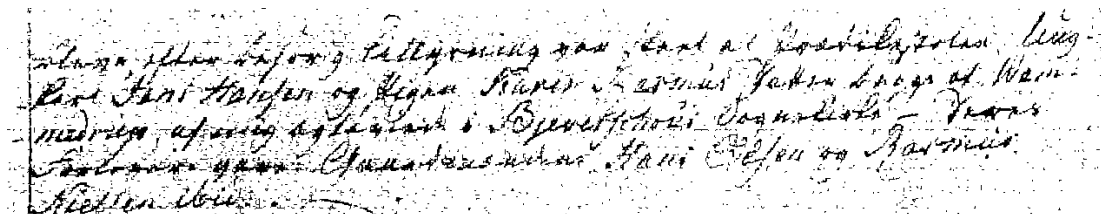 bleve efter bevor g Tillysning var skeet af Prædikestolen Ung-
karl Jens Hansen og Pigen Karen Rasmus Datter begge af Wem-
medrup af mig ægteviede i Bjeverschous Sognekirke – Deres
Forlovere vare Gaardmændene Hans Olsen og Rasmus
Nielsen ibid.